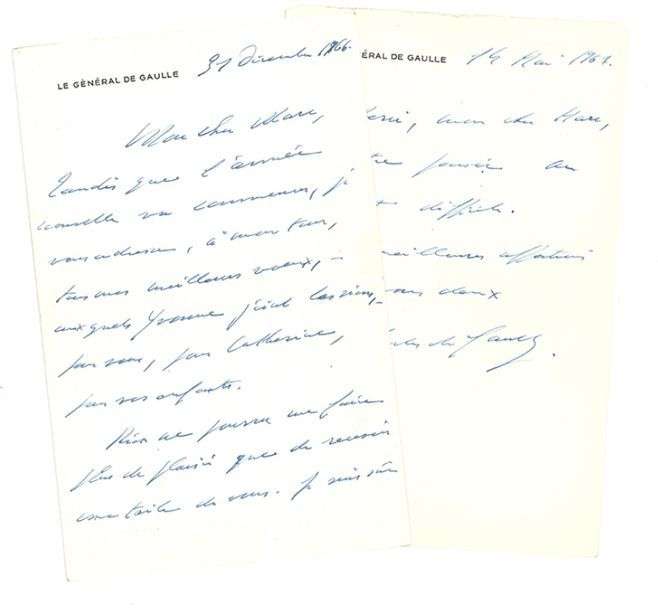 LE GÉNÉRAL DE GAULLE
31 Décembre 1966.
Mon cher Marc,
Tandis que l'année
nouvelle va commencer, je
vous adresse, à mon tour,
tous mes meilleurs vœux, –
auxquels Yvonne joint les siens, –
pour vous, pour Catherine,
pour vos enfants.
Rien ne pourra me faire
plus de plaisir que de recevoir
une toile de vous. Je suis sûr
ÉRAL DE GAULLE
14 Mai
mon cher Marc,
pensée au
difficile.
meilleures affections
vous deux
de Gaulle.